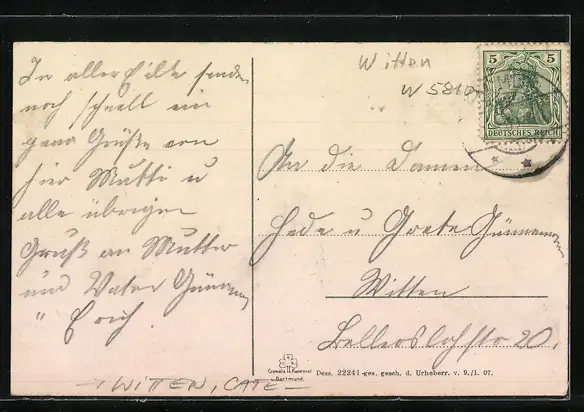 In aller Eile sende
noch schnell ein
paar Grüße von
hier Mutti u
alle übrigen
Gruß an Mutter
und Vater
" Erich.
Witten
W 5810
5 5
DEUTSCHES REICH
An die Damen
Hede u Grete
Witten
20.
Dortmund.
Dess. 22241-ges. gesch. d. Urheberr. v. 9./1. 07.
WITTEN, CATE